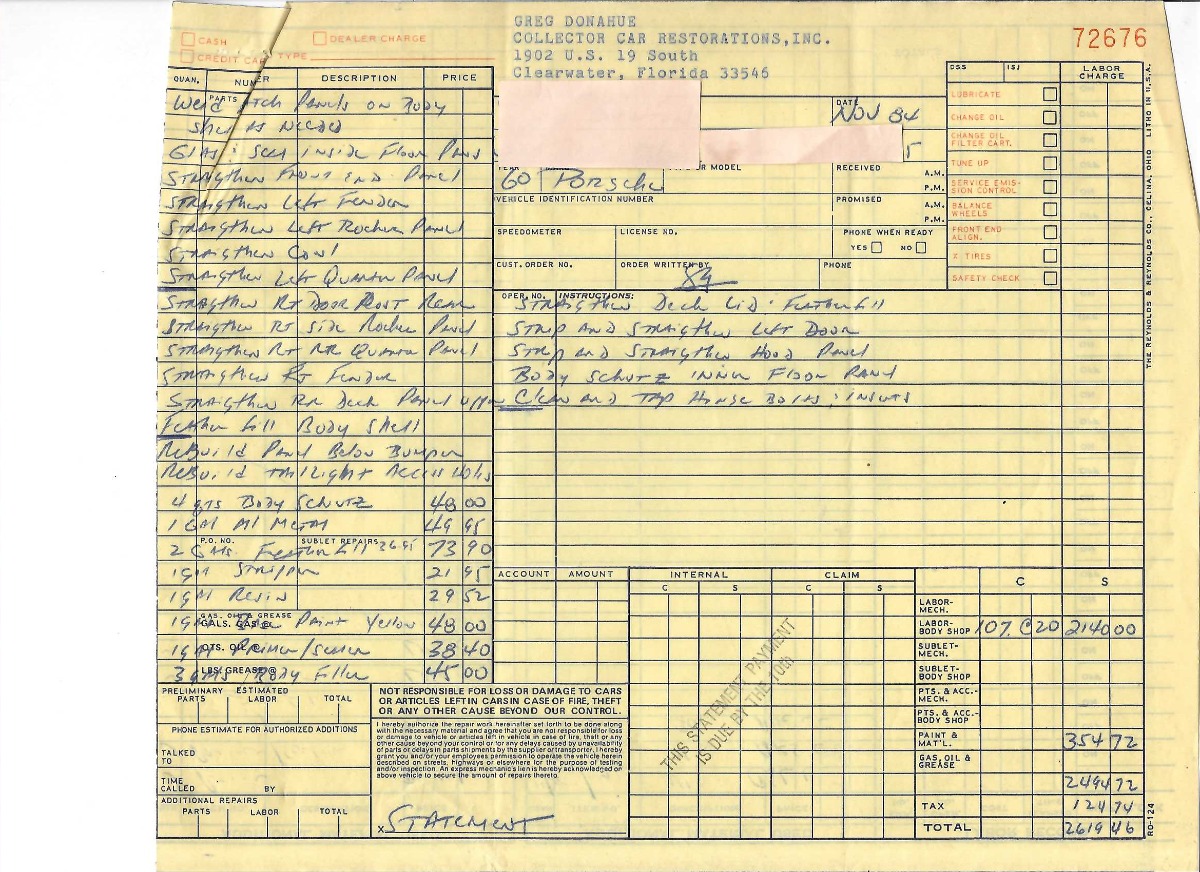 GREG DONAHUE
COLLECTOR CAR RESTORATIONS,INC.
1902 U.S. 19 South
Clearwater, Florida 33546
72676
CASH
DEALER CHARGE
CREDIT CA TYPE
QUAN.
DESCRIPTION
PRICE
PARTS
Panels on Body
as needed
Seel inside Floor Pans
STRAIGthen FRONT END PANel
STRAIGthen Left Fender
STRAIGthen Left Rocker Panel
STRAIGthen Cowl
STRAIGthen Left Quarter Panel
STRAIGthen RT Door Post Rear
STRAIGthen RT side Rocker Panel
STRAIGthen RT RR Quarter Panel
STRAIGthen RT Fender
STRAIGthen RR Deck Panel upper
Feather fill Body Shell
ReBuild Panel Below Bumper
ReBuild TAILlight Access Holes
4 qts Body Schutz 48 00
1 GAl Al Metal 49 95
P.O. NO.
SUBLET REPAIRS
2 GAls. Feather fill 36.95 73 90
1 gAl Stripper 21 95
1 gAl Resin 29 52
GAS, OIL & GREASE
GALS. GAS @
Paint Yellow 48 00
QTS. OIL @
1 gAl Primer/sealer 38 40
LBS. GREASE @
3 gAls Body Filler 45 00
DATE
NOV 84
5
YEAR
MODEL
RECEIVED
A.M.
P.M.
60 Porsche
VEHICLE IDENTIFICATION NUMBER
PROMISED
A.M.
P.M.
SPEEDOMETER
LICENSE NO.
PHONE WHEN READY
YES
NO
CUST. ORDER NO.
ORDER WRITTEN BY
PHONE
OPER. NO.
INSTRUCTIONS:
STRAIGthen Deck Lid. Featherfill
Strip AND STRAIGthen Left Door
Strip and STRAIGthen Hood Panel
Body Schutz INNER Floor Panel
Clean AND TAP
LABOR
CHARGE
LUBRICATE
CHANGE OIL
CHANGE OIL
FILTER CART.
TUNE UP
SERVICE EMIS-
SION CONTROL
BALANCE
WHEELS
FRONT END
ALIGN.
X TIRES
SAFETY CHECK
THE REYNOLDS & REYNOLDS CO., CELINA, OHIO LITHO IN U.S.A.
ACCOUNT
AMOUNT
INTERNAL
C
S
CLAIM
C
S
C
S
LABOR-
MECH.
LABOR-
BODY SHOP 107. @20 2140 00
SUBLET-
MECH.
SUBLET-
BODY SHOP
PTS. & ACC.-
MECH.
PTS. & ACC.-
BODY SHOP
PAINT &
MAT'L. 354 72
GAS, OIL &
GREASE
2494 72
TAX 124 74
TOTAL 2619 46
RO-124
THIS STATEMENT PAYMENT
IS DUE BY THE 10th
PRELIMINARY ESTIMATED
PARTS LABOR TOTAL
PHONE ESTIMATE FOR AUTHORIZED ADDITIONS
TALKED
TO
TIME
CALLED BY
ADDITIONAL REPAIRS
PARTS LABOR TOTAL
NOT RESPONSIBLE FOR LOSS OR DAMAGE TO CARS
OR ARTICLES LEFT IN CARS IN CASE OF FIRE, THEFT
OR ANY OTHER CAUSE BEYOND OUR CONTROL.
I hereby authorize the repair work hereinafter set forth to be done along
with the necessary material and agree that you are not responsible for loss
or damage to vehicle or articles left in vehicle in case of fire, theft or any
other cause beyond your control or for any delays caused by unavailability
of parts or delays in parts shipments by the supplier or transporter. I hereby
grant you and/or your employees permission to operate the vehicle herein
described on streets, highways or elsewhere for the purpose of testing
and/or inspection. An express mechanic's lien is hereby acknowledged on
above vehicle to secure the amount of repairs thereto.
X STATEMENT